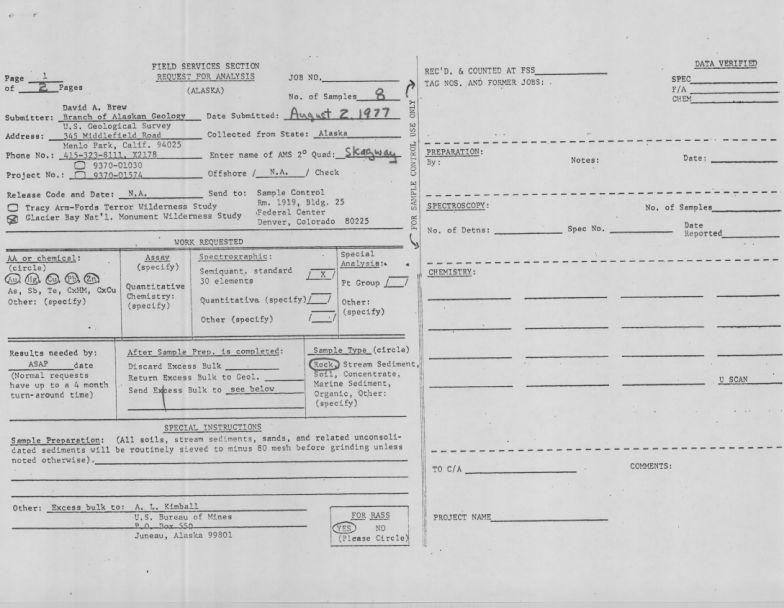 FIELD SERVICES SECTION
Page 1 REQUEST FOR ANALYSIS JOB NO.
of 2 Pages (ALASKA)
No. of Samples 8
David A. Brew
Submitter: Branch of Alaskan Geology Date Submitted: August 2, 1977
U.S. Geological Survey
Address: 345 Middlefield Road Collected from State: Alaska
Menlo Park, Calif. 94025
Phone No.: 415-323-8111, X2178 Enter name of AMS 2° Quad: Skagway
9370-01030
Project No.: 9370-01574 Offshore / N.A. / Check
Release Code and Date: N.A. Send to: Sample Control
Rm. 1919, Bldg. 25
Tracy Arm-Fords Terror Wilderness Study Federal Center
Glacier Bay Nat'l. Monument Wilderness Study Denver, Colorado 80225
WORK REQUESTED
AA or chemical: Assay Spectrographic: Special
(circle) (specify) Analysis:
Au, Hg, Cu, Pb, Zn Semiquant. standard / X / Pt Group / /
As, Sb, Te, CxHM, CxCu Quantitative 30 elements
Other: (specify) Chemistry: Quantitative (specify) / / Other:
(specify) Other (specify) / / (specify)
Results needed by: After Sample Prep. is completed: Sample Type (circle)
ASAP date Discard Excess Bulk Rock, Stream Sediment,
(Normal requests Return Excess Bulk to Geol. Soil, Concentrate,
have up to a 4 month Send Excess Bulk to see below Marine Sediment,
turn-around time) Organic, Other:
(specify)
SPECIAL INSTRUCTIONS
Sample Preparation: (All soils, stream sediments, sands, and related unconsoli-
dated sediments will be routinely sieved to minus 80 mesh before grinding unless
noted otherwise).
Other: Excess bulk to: A. L. Kimball
U.S. Bureau of Mines
P.O. Box 550
Juneau, Alaska 99801
FOR RASS
YES NO
(Please Circle)
FOR SAMPLE CONTROL USE ONLY
DATA VERIFIED
REC'D. & COUNTED AT FSS
TAG NOS. AND FORMER JOBS: SPEC
F/A
CHEM
PREPARATION:
By: Notes: Date:
SPECTROSCOPY: No. of Samples
No. of Detns: Spec No. Date
Reported
CHEMISTRY:
U SCAN
TO C/A COMMENTS:
PROJECT NAME